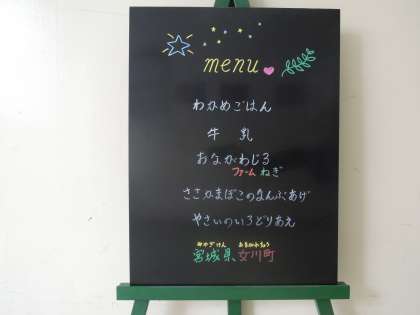 menu
わかめごはん
牛乳
おながわじる
ファーム ねぎ
ささかまぼこのなんぶあげ
やさいのいろどりあえ
みやぎけん おながわちょう
宮城県 女川町